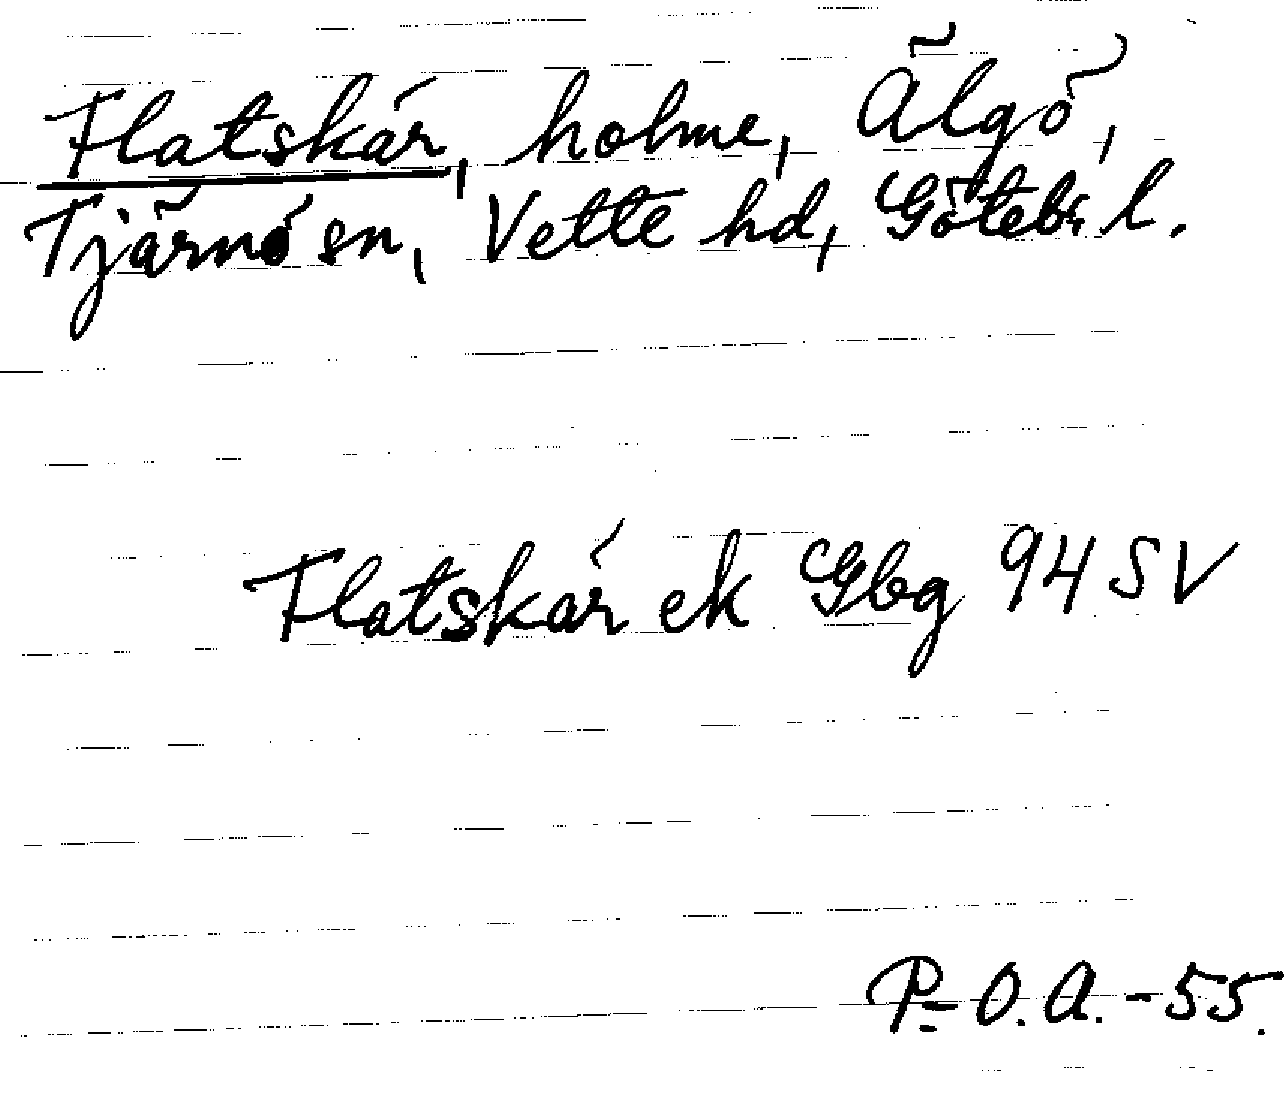 Flatskär, holme, Älgö,
Tjärnö sn, Vette hd, Götebs l.
Flatskär ek Gbg 94 SV
P-O.A.-55.